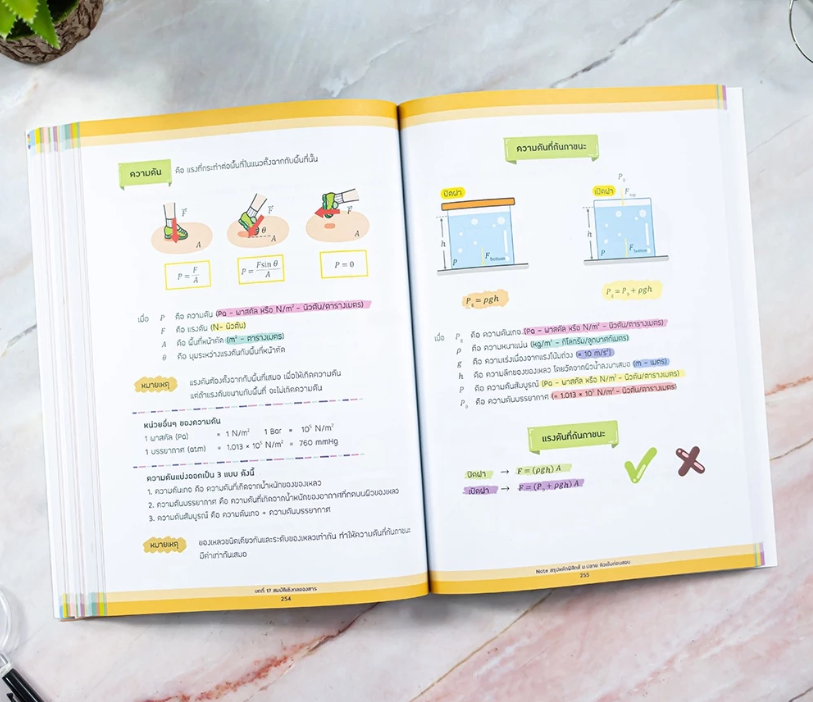 ความดัน คือ แรงที่กระทำต่อพื้นที่ในแนวตั้งฉากกับพื้นที่นั้น
F A
F θ A
F A
P = F/A
P = Fsin θ/A
P = 0
เมื่อ P คือ ความดัน (Pa - พาสคัล หรือ N/m² - นิวตัน/ตารางเมตร)
F คือ แรงดัน (N- นิวตัน)
A คือ พื้นที่หน้าตัด (m² - ตารางเมตร)
θ คือ มุมระหว่างแรงดันกับพื้นที่หน้าตัด
หมายเหตุ แรงดันต้องตั้งฉากกับพื้นที่เสมอ เพื่อให้เกิดความดัน
แต่ถ้าแรงดันขนานกับพื้นที่ จะไม่เกิดความดัน
หน่วยอื่นๆ ของความดัน
1 พาสคัล (Pa) = 1 N/m² 1 Bar = 10⁵ N/m²
1 บรรยากาศ (atm) = 1.013 × 10⁵ N/m² = 760 mmHg
ความดันแบ่งออกเป็น 3 แบบ ดังนี้
1. ความดันเกจ คือ ความดันที่เกิดจากน้ำหนักของของเหลว
2. ความดันบรรยากาศ คือ ความดันที่เกิดจากน้ำหนักของอากาศที่กดบนผิวของเหลว
3. ความดันสัมบูรณ์ คือ ความดันเกจ + ความดันบรรยากาศ
หมายเหตุ ของเหลวชนิดเดียวกันและระดับของเหลวเท่ากัน ทำให้ความดันที่ก้นภาชนะ
มีค่าเท่ากันเสมอ
บทที่ 17 สมบัติเชิงกลของสาร
254
ความดันที่ก้นภาชนะ
ปิดฝา
h
P F bottom
เปิดฝา
F top
h
P F bottom
P g = ρgh
เมื่อ P g คือ ความดันเกจ (Pa - พาสคัล หรือ N/m² - นิวตัน/ตารางเมตร)
ρ คือ ความหนาแน่น (kg/m³ - กิโลกรัม/ลูกบาศก์เมตร)
g คือ ความเร่งเนื่องจากแรงโน้มถ่วง (≈ 10 m/s²)
h คือ ความลึกของของเหลว โดยวัดจากผิวน้ำลงมาเสมอ (m - เมตร)
P คือ ความดันสัมบูรณ์ (Pa - พาสคัล หรือ N/m² - นิวตัน/ตารางเมตร)
คือ ความดันบรรยากาศ
แรงดันที่ก้นภาชนะ
ปิดฝา → F = (ρgh) A
เปิดฝา →
255